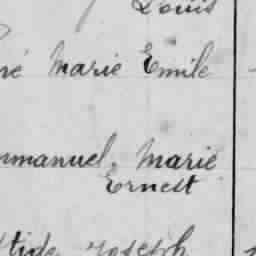 Louis
né Marie Emile
mmanuel. Marie
Ernest
tide Joseph